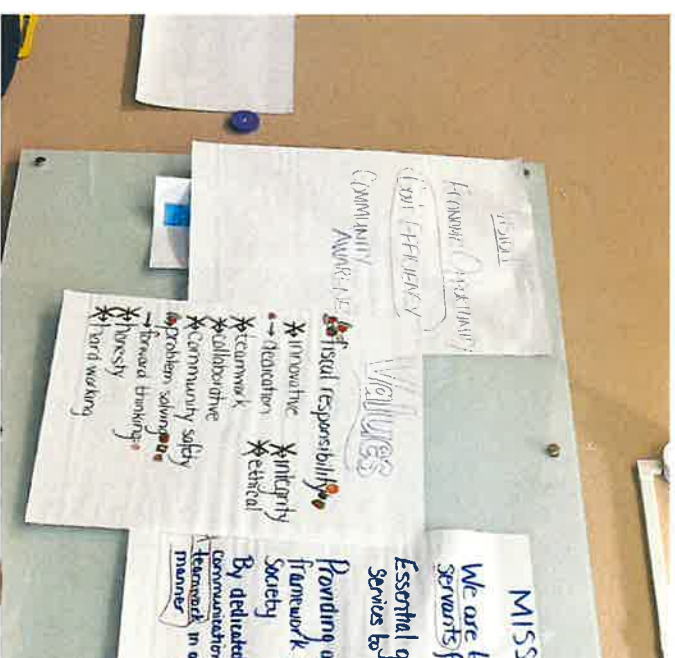 VISION
ECONOMIC OPPORTUNITY
COST EFFICIENCY
COMMUNITY
AWARENESS
Values
fiscal responsibility
innovative
integrity
→ dedication
ethical
teamwork
collaborative
community safety
problem solving
→ forward thinking
honesty
hard working
MISS
We are
servants
Essential
Service to
Providing
framework
Society
By dedicated
communication
teamwork in a
manner